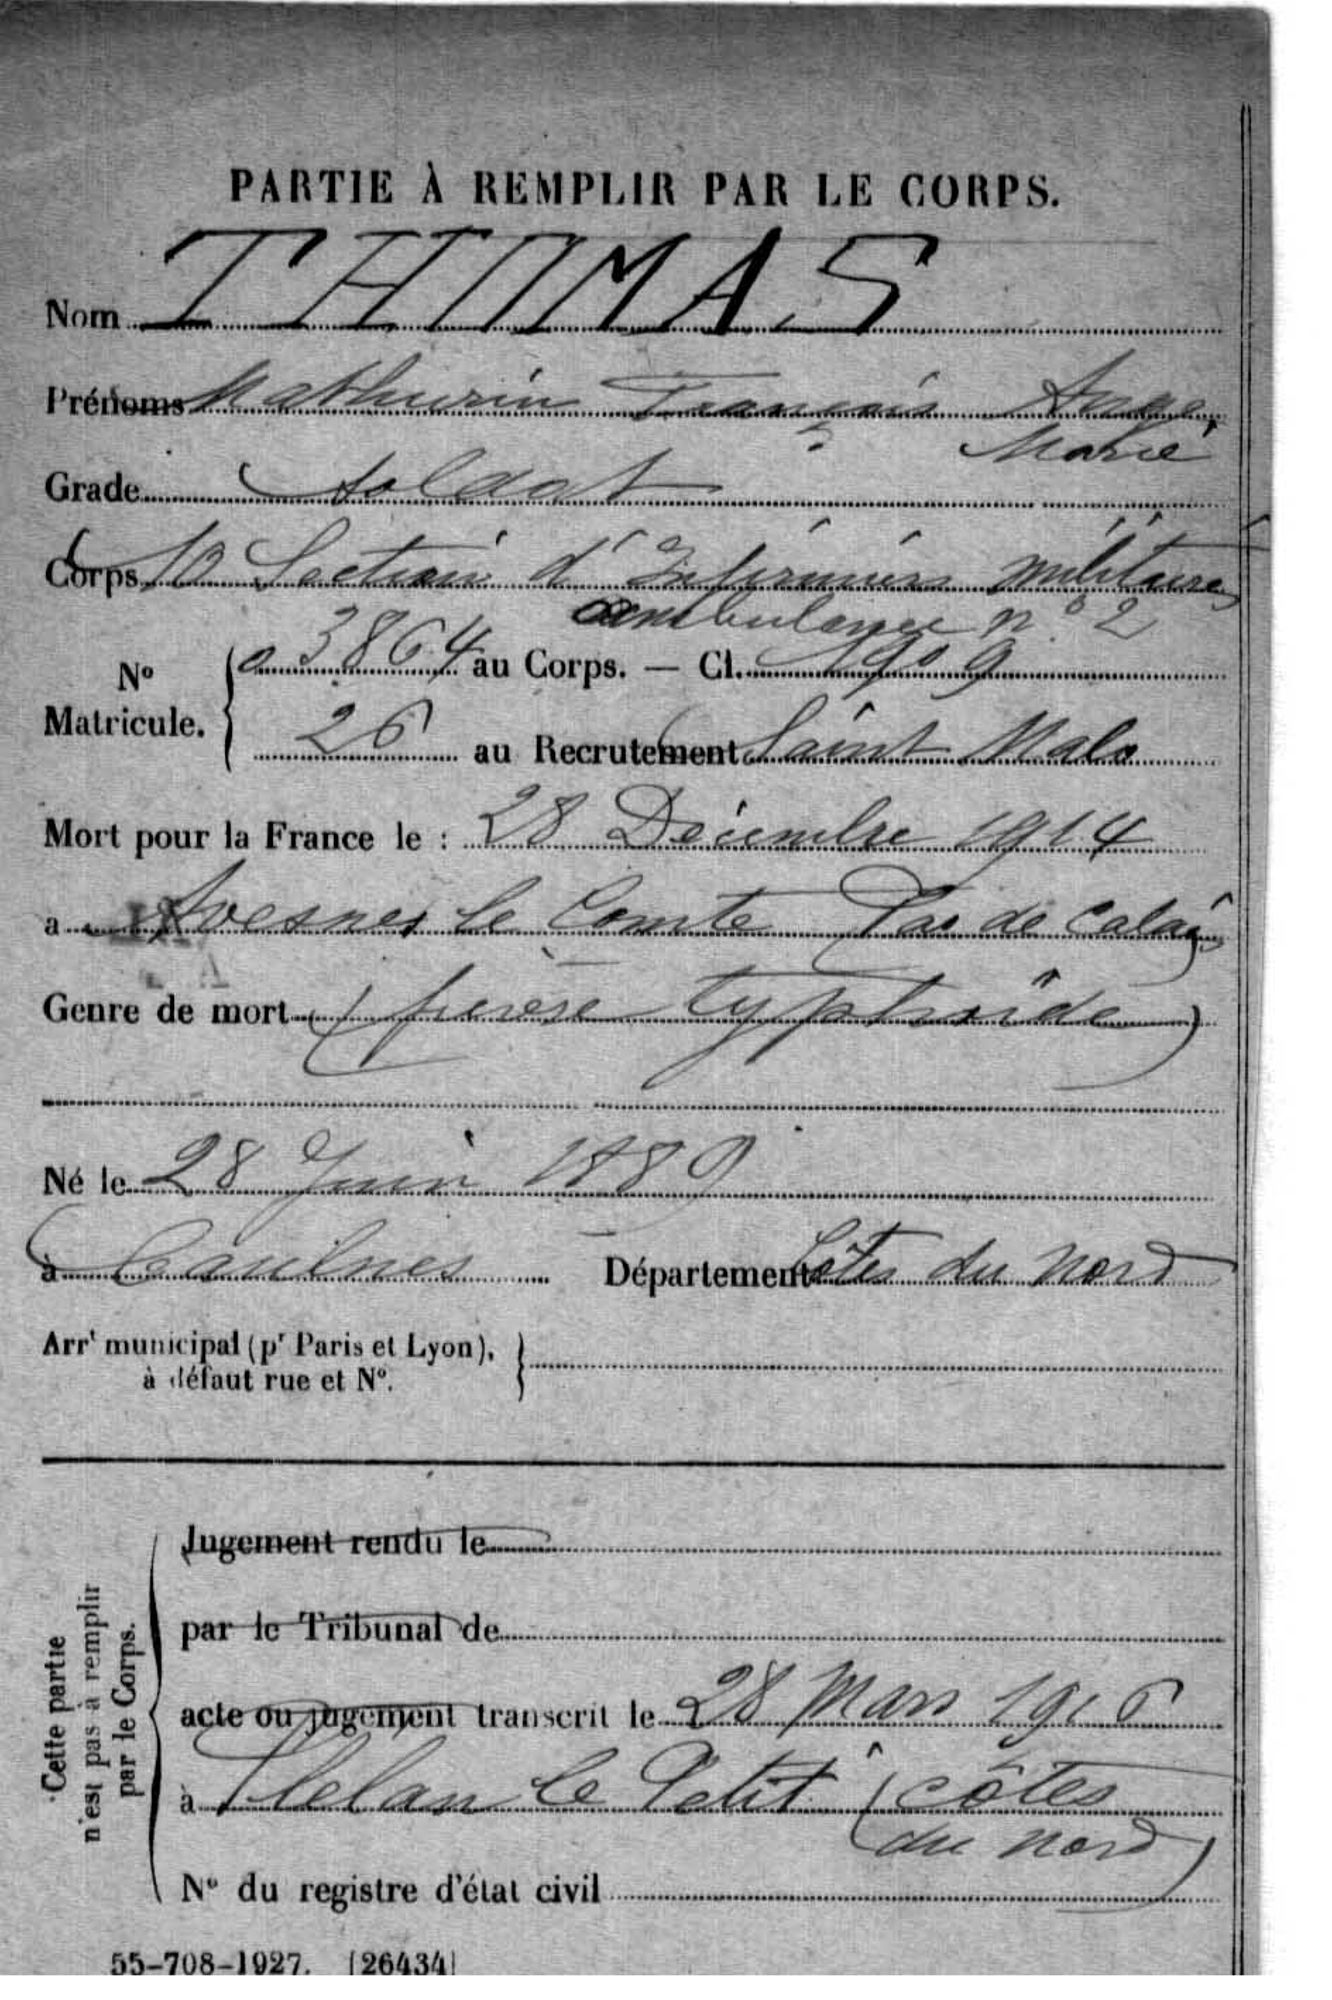 PARTIE À REMPLIR PAR LE CORPS.
Nom THOMAS
Prénoms Mathurin François Ange
Marie
Grade Soldat
Corps 10 Section d'Infirmiers militaires
ambulance n° 2
N° Matricule. 3864 au Corps. — Cl. 1909
26 au Recrutement Saint Malo
Mort pour la France le : 28 Décembre 1914
a Avesnes le Comte Pas de Calais
Genre de mort (fièvre typhoïde)
Né le 28 Juin 1889
à Caulnes Département Côtes du Nord
Arrt municipal (pr Paris et Lyon),
à défaut rue et N°.
Cette partie
n'est pas à remplir
par le Corps.
Jugement rendu le
par le Tribunal de
acte ou jugement transcrit le 28 Mars 1916
à Plélan le Petit (côtes
du Nord)
N° du registre d'état civil
55-708-1927. [26434]